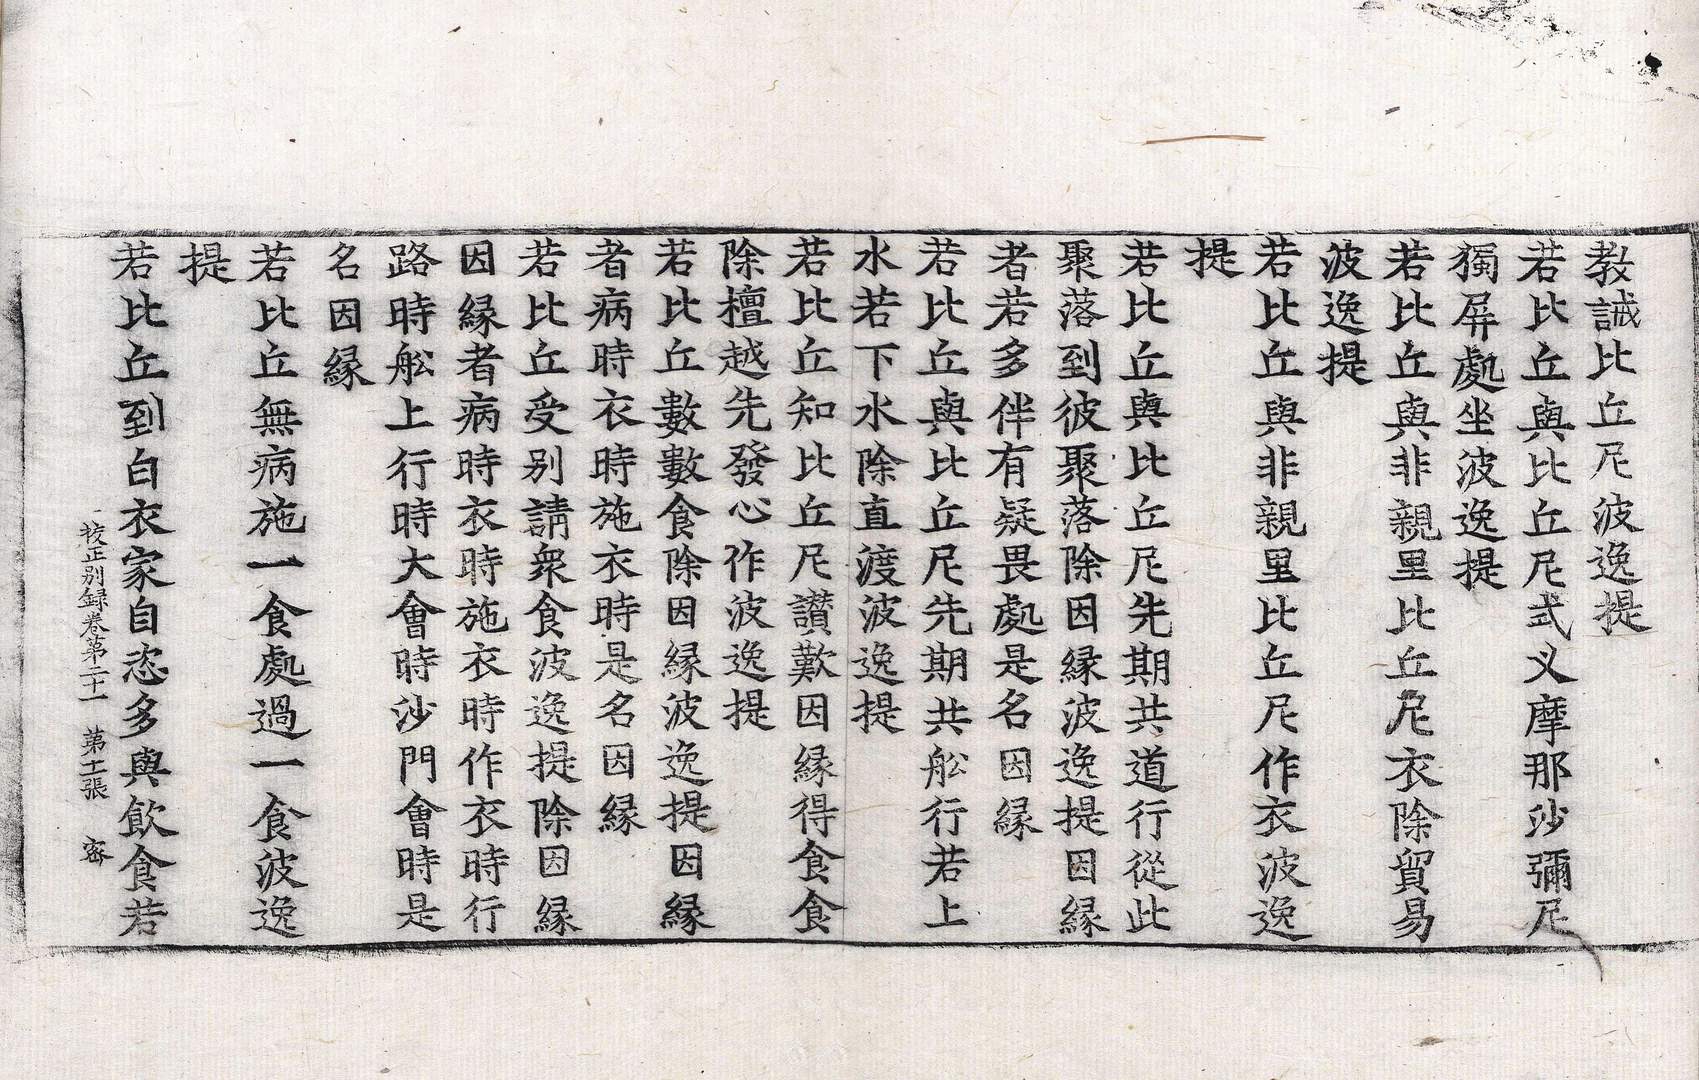 教誡比丘尼波逸提
若比丘與比丘尼式叉摩那沙彌尼
獨屏處坐波逸提
若比丘與非親里比丘尼衣除貿易
波逸提
若比丘與非親里比丘尼作衣波逸
提
若比丘與比丘尼先期共道行從此
聚落到彼聚落除因緣波逸提因緣
者若多伴有疑畏處是名因緣
若比丘與比丘尼先期共舩行若上
水若下水除直渡波逸提
若比丘知比丘尼讃歎因緣得食食
除檀越先發心作波逸提
若比丘數數食除因緣波逸提因緣
者病時衣時施衣時是名因緣
若比丘受別請衆食波逸提除因緣
因緣者病時衣時施衣時作衣時行
路時舩上行時大會時沙門會時是
名因緣
若比丘無病施一食處過一食波逸
提
若比丘到白衣家自恣多與飲食若
校正別録卷第二十一 第十一張 密